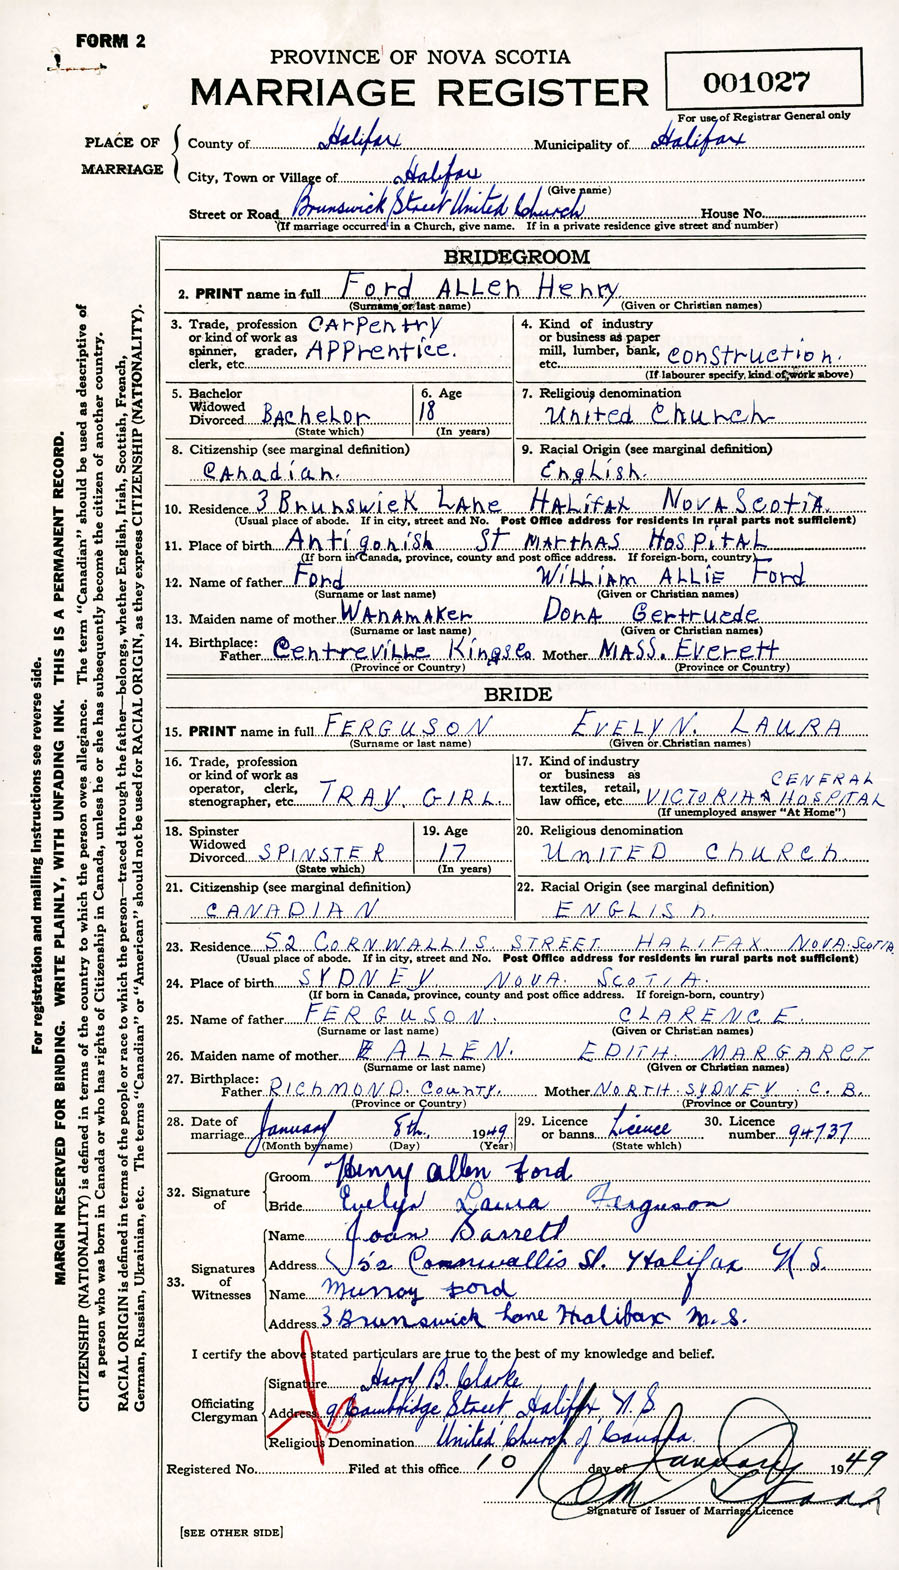 FORM 2
PROVINCE OF NOVA SCOTIA
MARRIAGE REGISTER
001027
For use of Registrar General only
PLACE OF MARRIAGE
County of Halifax Municipality of Halifax
City, Town or Village of Halifax
(Give name)
Street or Road Brunswick Street United Church House No.
(If marriage occurred in a Church, give name. If in a private residence give street and number)
BRIDEGROOM
2. PRINT name in full Ford Allen Henry
(Surname or last name) (Given or Christian names)
3. Trade, profession or kind of work as spinner, grader, clerk, etc. Carpentry Apprentice.
4. Kind of industry or business as paper mill, lumber, bank, etc. construction.
(If labourer specify, kind of work above)
5. Bachelor Widowed Divorced Bachelor
(State which)
6. Age 18
(In years)
7. Religious denomination United Church
8. Citizenship (see marginal definition) Canadian.
9. Racial Origin (see marginal definition) English.
10. Residence 3 Brunswick Lane Halifax Nova Scotia.
(Usual place of abode. If in city, street and No. Post Office address for residents in rural parts not sufficient)
11. Place of birth Antigonish St Marthas Hospital
(If born in Canada, province, county and post office address. If foreign-born, country)
12. Name of father Ford William Allie Ford
(Surname or last name) (Given or Christian names)
13. Maiden name of mother Wanamaker Dona Gertruede
(Surname or last name) (Given or Christian names)
14. Birthplace: Father Centreville Kings Co Mother Mass. Everett
(Province or Country) (Province or Country)
BRIDE
15. PRINT name in full FERGUSON EVELYN. LAURA
(Surname or last name) (Given or Christian names)
16. Trade, profession or kind of work as operator, clerk, stenographer, etc. TRAY GIRL.
17. Kind of industry or business as textiles, retail, law office, etc. VICTORIA GENERAL HOSPITAL
(If unemployed answer "At Home")
18. Spinster Widowed Divorced SPINSTER
(State which)
19. Age 17
(In years)
20. Religious denomination UNITED CHURCH.
21. Citizenship (see marginal definition) CANADIAN
22. Racial Origin (see marginal definition) ENGLISH.
23. Residence 52 CORNWALLIS STREET HALIFAX NOVA-SCOTIA
(Usual place of abode. If in city, street and No. Post Office address for residents in rural parts not sufficient)
24. Place of birth SYDNEY NOVA. SCOTIA.
(If born in Canada, province, county and post office address. If foreign-born, country)
25. Name of father FERGUSON. CLARENCE.
(Surname or last name) (Given or Christian names)
26. Maiden name of mother ALLEN. EDITH. MARGARET
(Surname or last name) (Given or Christian names)
27. Birthplace: Father RICHMOND. COUNTY. Mother NORTH-SYDNEY C.B.
(Province or Country) (Province or Country)
28. Date of marriage January 8th 1949
(Month by name) (Day) (Year)
29. Licence or banns Licence
(State which)
30. Licence number 94737
32. Signature of
Groom Henry Allen Ford
Bride Evelyn Laura Ferguson
33. Signatures of Witnesses
Name Joan Barrett
Address 52 Cornwallis St. Halifax N S
Name Murray Ford
Address 3 Brunswick Lane Halifax N.S.
I certify the above stated particulars are true to the best of my knowledge and belief.
Officiating Clergyman
Signature Harry B. Clarke
Address 9 Cambridge Street, Halifax, N.S
Religious Denomination United Church of Canada.
Registered No. Filed at this office 10 day of January 1949
Signature of Issuer of Marriage Licence
[SEE OTHER SIDE]
For registration and mailing instructions see reverse side.
MARGIN RESERVED FOR BINDING. WRITE PLAINLY, WITH UNFADING INK. THIS IS A PERMANENT RECORD.
CITIZENSHIP (NATIONALITY) is defined in terms of the country to which the person owes allegiance. The term "Canadian" should be used as descriptive of
a person who was born in Canada or who has rights of Citizenship in Canada, unless he or she has subsequently become the citizen of another country.
RACIAL ORIGIN is defined in terms of the people or race to which the person—traced through the father—belongs, whether English, Irish, Scottish, French,
German, Russian, Ukrainian, etc. The terms "Canadian" or "American" should not be used for RACIAL ORIGIN, as they express CITIZENSHIP (NATIONALITY).